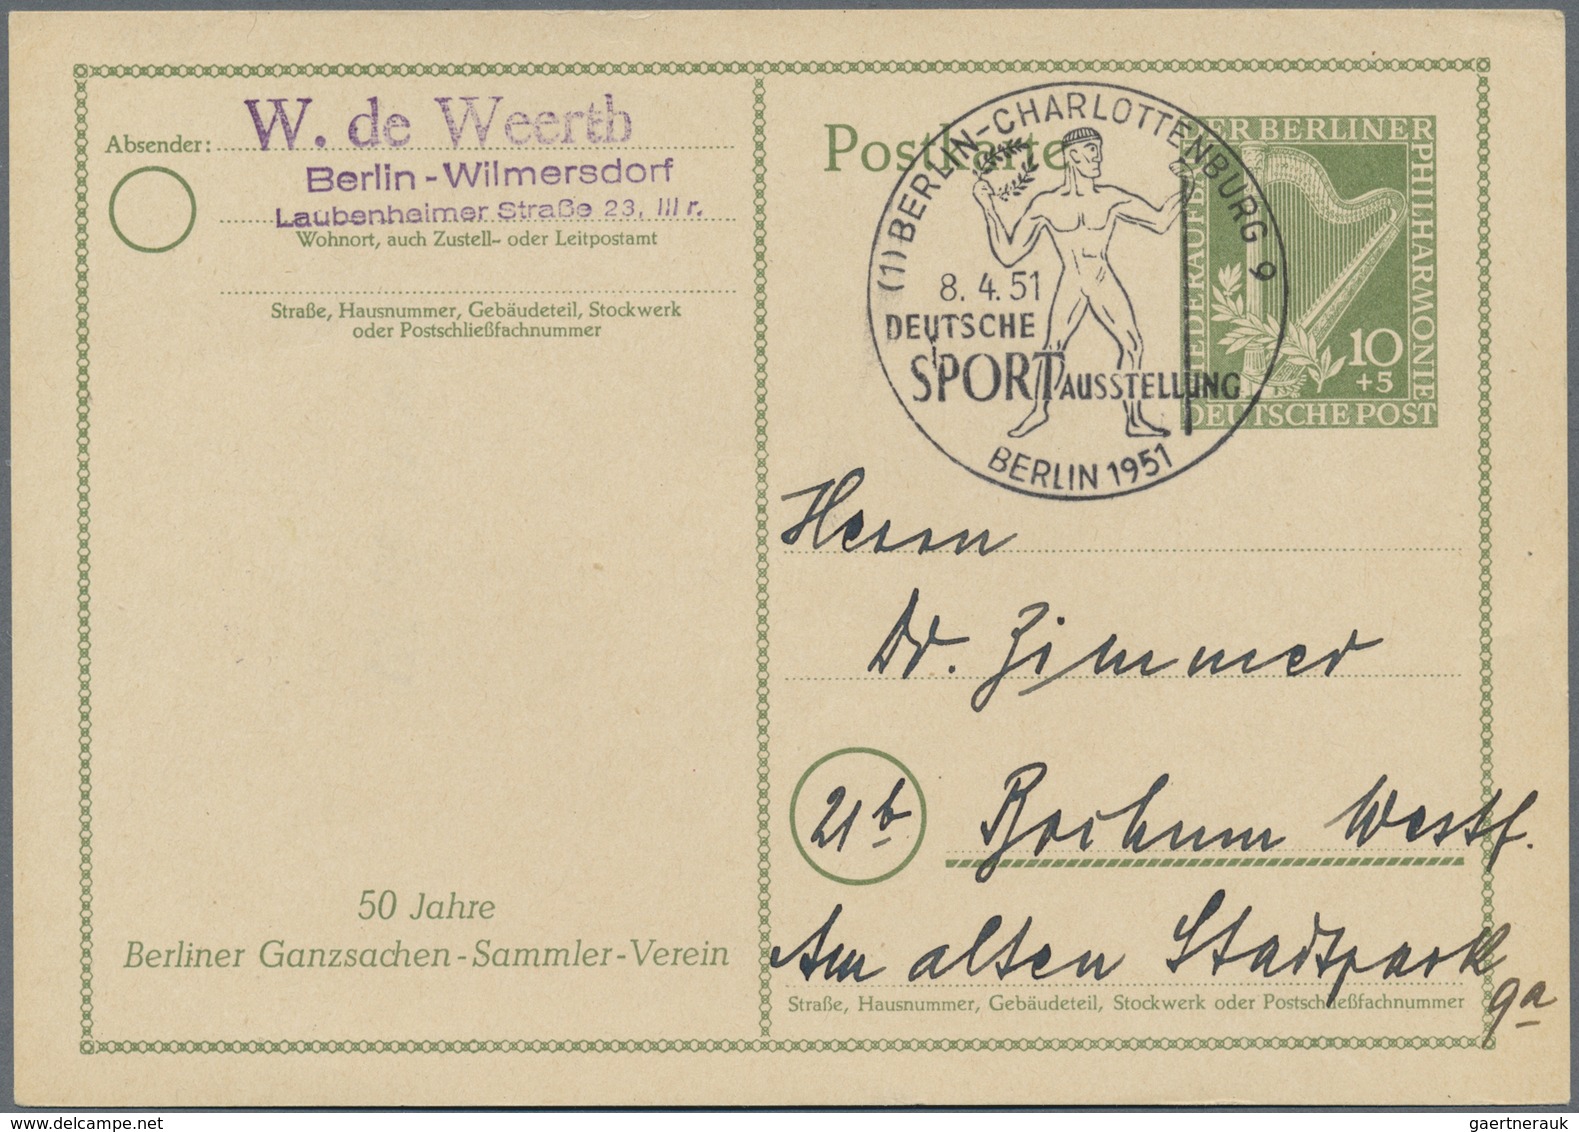 Absender: W. de Weerth
Berlin-Wilmersdorf
Laubenheimer Straße 23, III r.
Wohnort, auch Zustell- oder Leitpostamt
Straße, Hausnummer, Gebäudeteil, Stockwerk
oder Postschließfachnummer
50 Jahre
Berliner Ganzsachen-Sammler-Verein
Postkarte
(1) BERLIN-CHARLOTTENBURG 9
8. 4. 51
DEUTSCHE
SPORT AUSSTELLUNG
BERLIN 1951
WIEDERAUFBAU DER BERLINER PHILHARMONIE
10
+5
DEUTSCHE POST
Herrn
Dr. Zimmer
21b Bochum Westf.
Am alten Stadtpark
9a
Straße, Hausnummer, Gebäudeteil, Stockwerk oder Postschließfachnummer
gaertnerauk